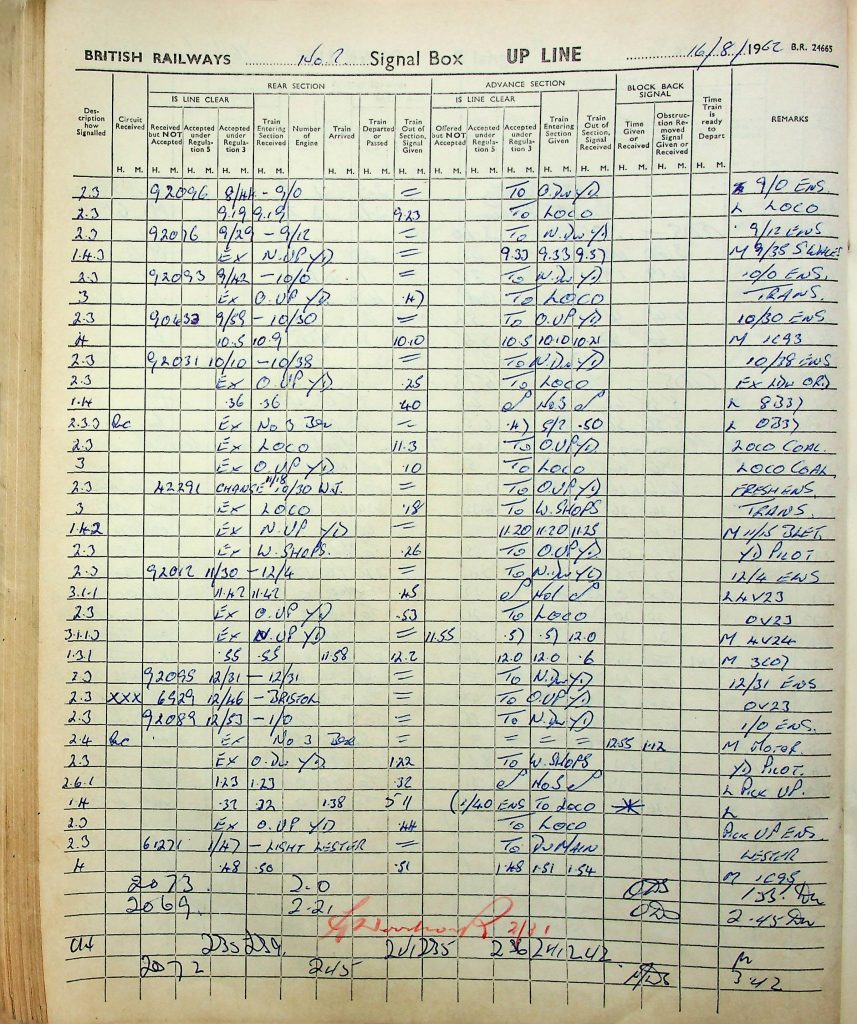 BRITISH RAILWAYS No. 2 Signal Box UP LINE 16/8/1962 B.R. 24665
REAR SECTION ADVANCE SECTION BLOCK BACK SIGNAL
IS LINE CLEAR IS LINE CLEAR
Description how Signalled Circuit Received Received but NOT Accepted Accepted under Regulation 5 Accepted under Regulation 3 Train Entering Section Received Number of Engine Train Arrived Train Departed or Passed Train Out of Section, Signal Given Offered but NOT Accepted Accepted under Regulation 5 Accepted under Regulation 3 Train Entering Section Given Train Out of Section, Signal Received Time Given or Received Obstruction Removed Signal Given or Received Time Train is ready to Depart REMARKS
H. M. H. M. H. M. H. M. H. M. H. M. H. M. H. M. H. M. H. M. H. M. H. M. H. M. H. M. H. M. H. M.
2.3 92096 8/44 - 9/0 = TO O.Dn YD 9/0 ENS.
2.3 9.19 9.19 9.23 TO LOCO L LOCO
2.3 92076 9/29 - 9/12 = TO N.Dn YD 9/12 ENS
1.4.3 EX N.UP YD = 9.33 9.33 9.37 M 9/35
2.3 92093 9/42 - 10/0 = TO N.Dn YD 10/0 ENS.
3 EX O.UP YD .47 TO LOCO TRANS.
2.3 9/59 - 10/30 = TO O.UP YD 10/30 ENS
4 10.5 10.9 10.10 10.5 10.10 10.21 M 1C93
2.3 92031 10/10 - 10/38 = TO N.Dn YD 10/38 ENS
2.3 EX O.UP YD .25 TO LOCO EX
1.4 .36 .36 .40 No3 L 8B37
2.3.3 Rc EX No 3 Box = .47 .50 L 0B37
2.3 EX LOCO 11.3 TO O.UP YD LOCO COAL.
3 EX O.UP YD .10 TO LOCO LOCO COAL
2.3 42291 CHANGE 11/18 10/30 W.J. = TO O.UP YD FRESH ENS.
3 EX LOCO .18 TO W.SHOPS TRANS.
1.4.2 EX N.UP YD = 11.20 11.20 11.25 M 11/15
2.3 EX W.SHOPS. .26 TO O.UP YD YD PILOT
2.3 92012 11/30 - 12/4 = TO N.Dn YD 12/4 ENS
3.1.1 11.42 11.42 .45 No1 L 4V23
2.3 EX O.UP YD .53 TO LOCO 0V23
3.1.1.3 EX N.UP YD = 11.55 .57 .57 12.0 M 4V24
1.3.1 .55 .55 11.58 12.2 12.0 12.0 .6 M 3C07
2.3 92095 12/31 - 12/31 = TO N.Dn YD 12/31 ENS
2.3 XXX 6929 12/46 - BRISTOL = TO O.UP YD 0V23
2.3 92089 12/53 - 1/0 = TO N.Dn YD 1/0 ENS.
2.4 Rc EX No 3 Box = = = = 12.55 1.12 M MOTOR.
2.3 EX O.Dn YD 1.22 TO W.SHOPS YD PILOT.
2.6.1 1.23 1.23 .32 No3 L PICK UP.
1.4 .32 .32 1.38 (1/40 ENS TO LOCO L
2.3 EX O.UP YD .44 TO LOCO PICK UP ENS.
2.3 1/47 - LIGHT LESTER = TO Dn MAIN LESTER
4 .48 .50 .51 1.48 1.51 1.54 M 1C95
2073 2.0 ODS 1.35. Dn
2069. 2.21 ODS 2.45 Dn
235 239. 241 235 236 241 242 M
2072 245 3.42